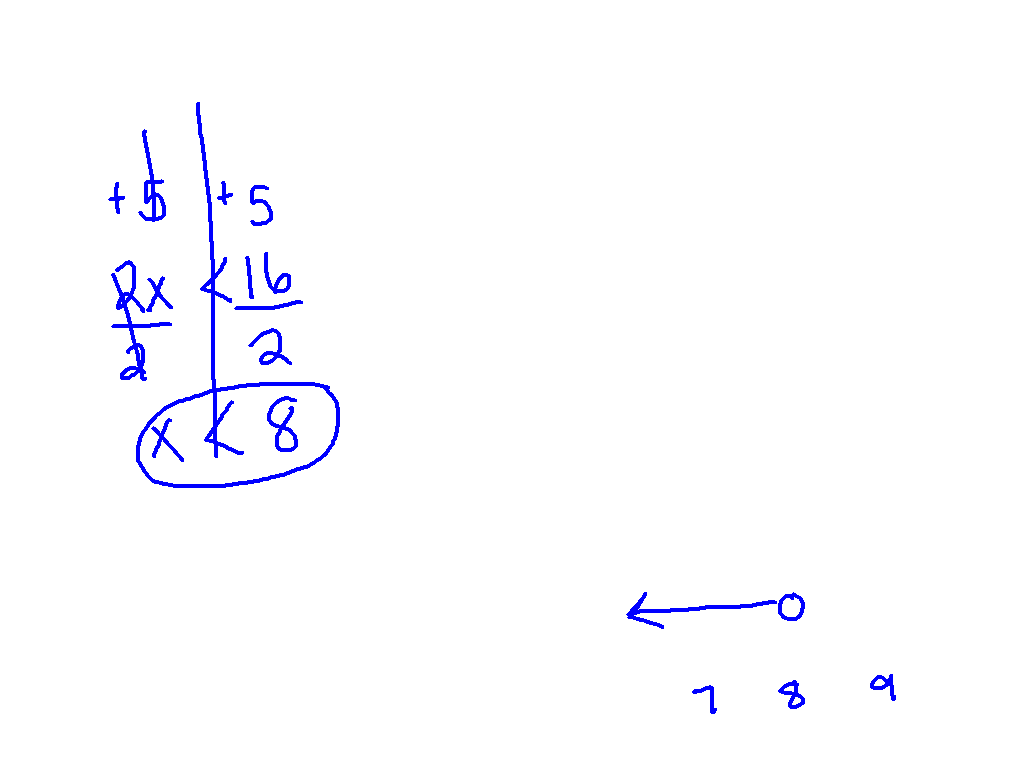 + 5 + 5
2x < 16
2 2
x < 8
7 8 9